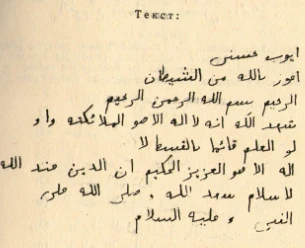 Текст:
ايوب عسسى
اعوز بالله من الشيطان
الرحيم بسم الله الرحمن الرحيم
شهد الله انه لا اله الا هو الملائكته واو
لو العلم قائما بالقسط لا
اله الا هو العزيز الحكيم ان الدين عند الله
لاسلام سعد الله . صلى الله على
النبى و عليه السلام